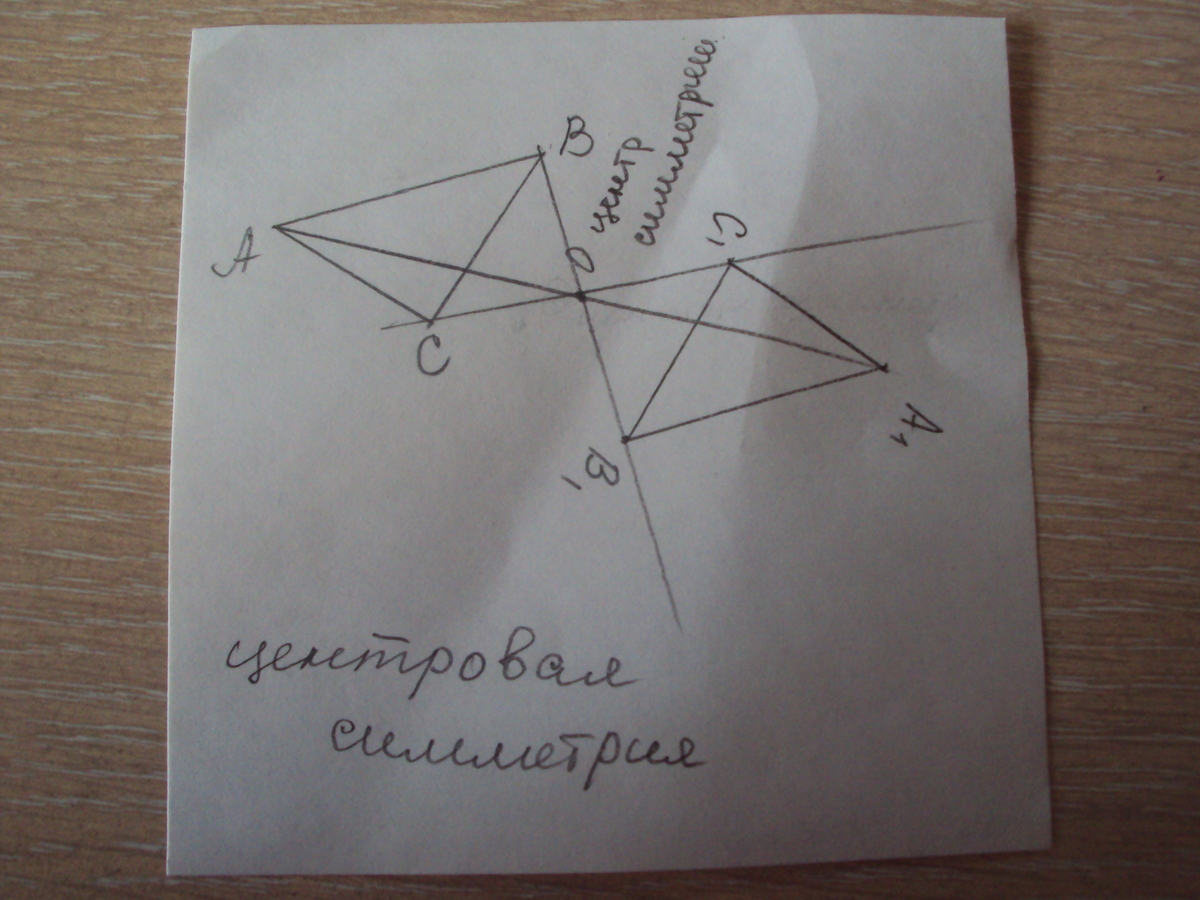 B
центр
симметрии
A
O
C₁
C
A₁
B₁
центровая
симметрия